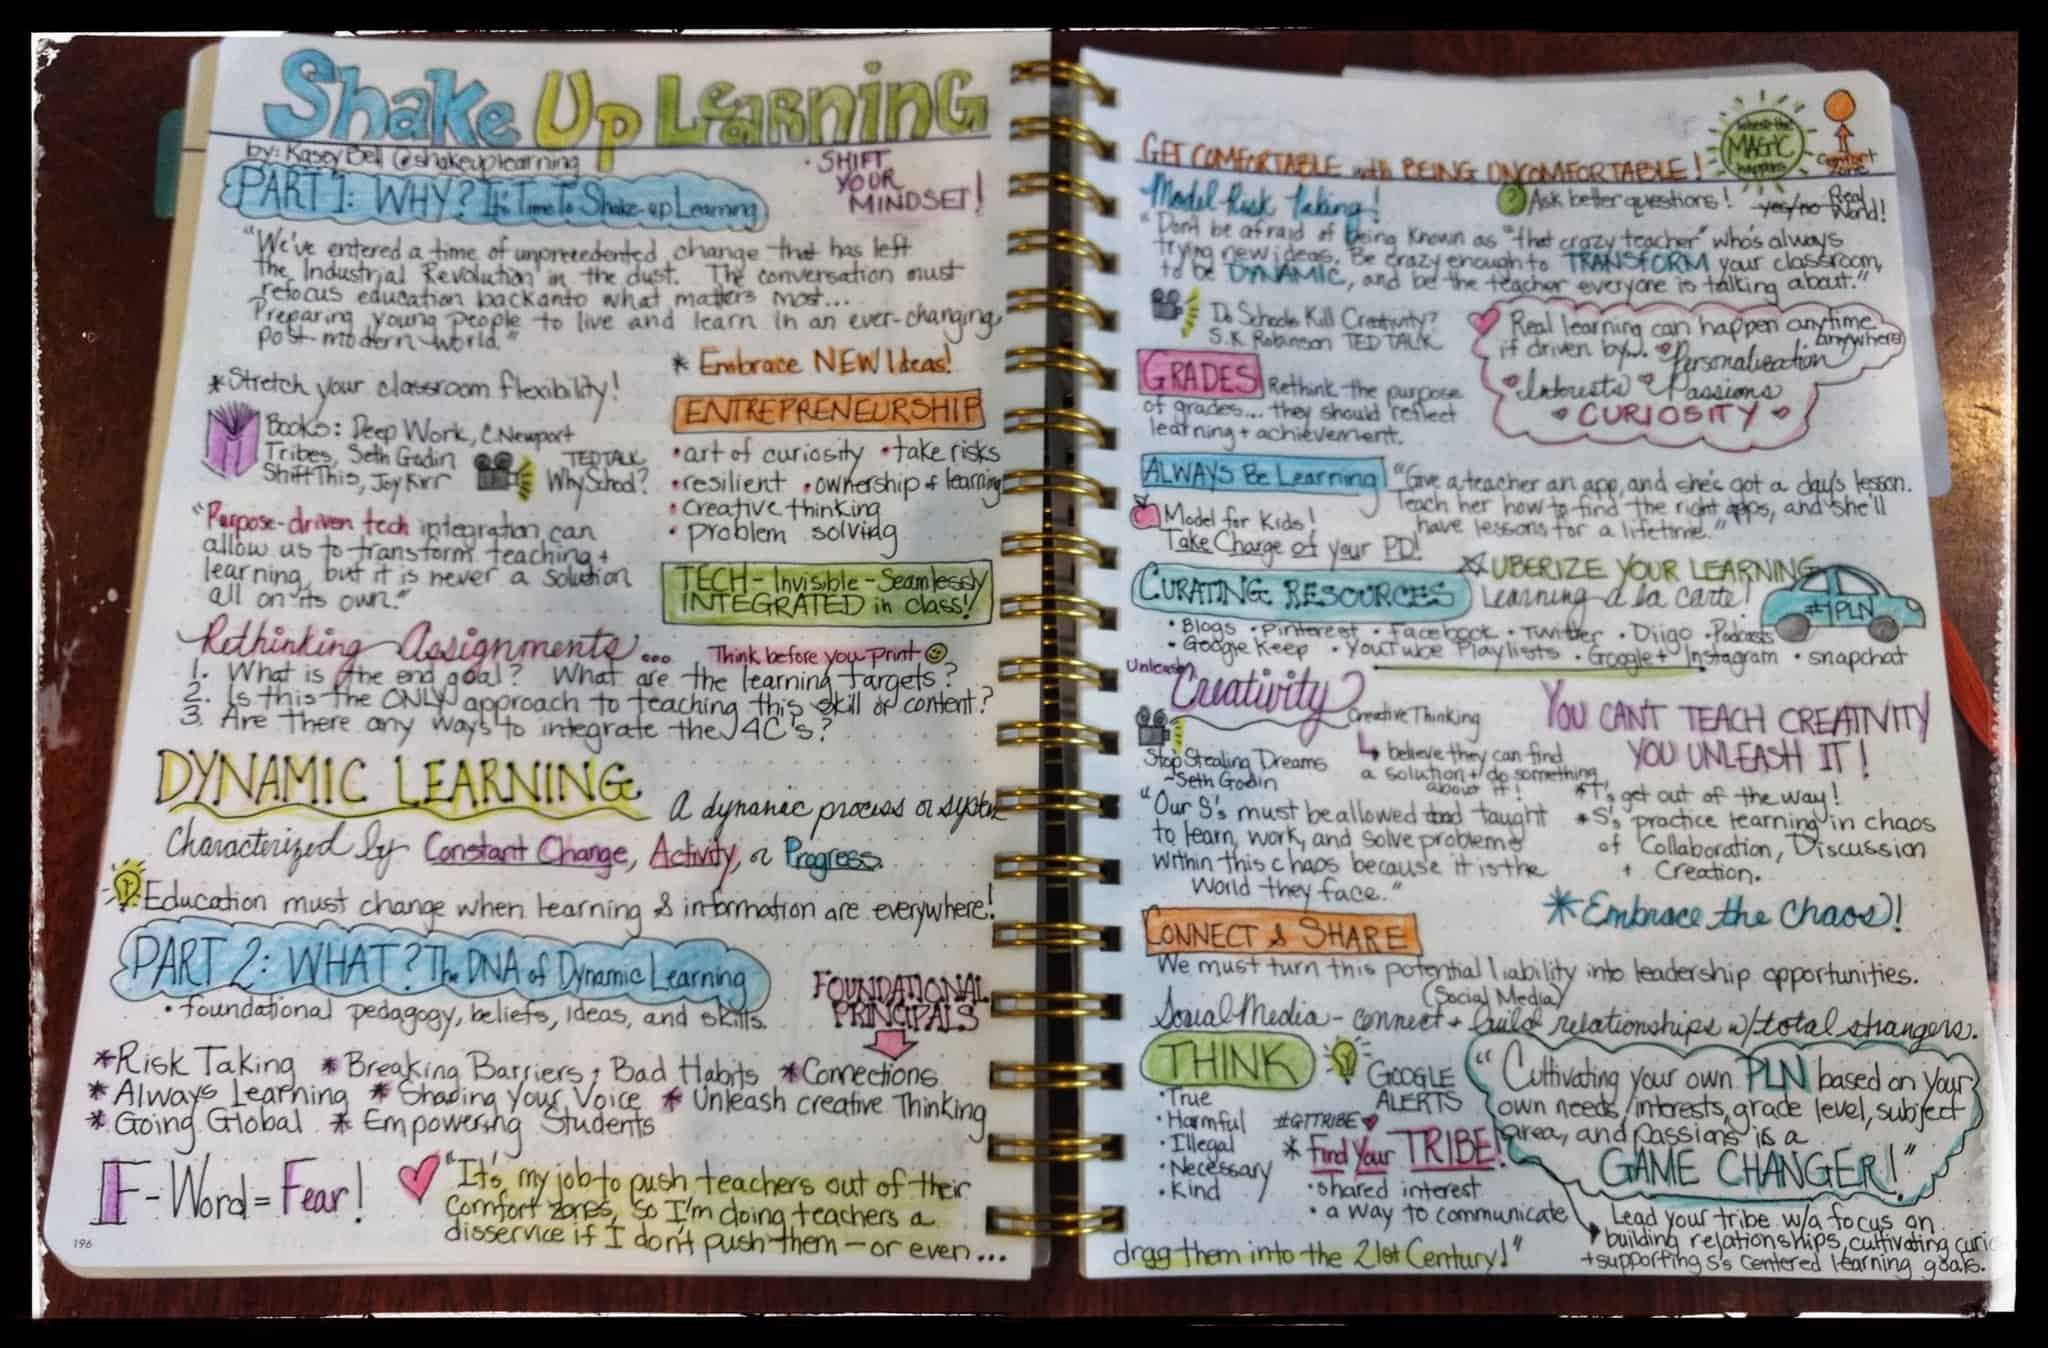 Shake Up Learning
by: Kasey Bell @shakeuplearning
• SHIFT
YOUR
MINDSET!
PART 1: WHY? It's Time To Shake-up Learning
"We've entered a time of unprecedented change that has left
the Industrial Revolution in the dust. The conversation must
refocus education back onto what matters most...
Preparing young people to live and learn in an ever-changing,
post-modern world."
* Embrace NEW Ideas!
*Stretch your classroom flexibility!
Books: Deep Work, C. Newport
Tribes, Seth Godin
Shift This, Joy Kirr
TED TALK
Why School?
ENTREPRENEURSHIP
• art of curiosity • take risks
• resilient • ownership of learning
• creative thinking
• problem solving
"Purpose-driven tech integration can
allow us to transform teaching +
learning, but it is never a solution
all on its own."
TECH - Invisible - Seamlessly
INTEGRATED in class!
Rethinking Assignments...
Think before you print
1. What is the end goal? What are the learning targets?
2. Is this the ONLY approach to teaching this skill or content?
3. Are there any ways to integrate the 4C's?
DYNAMIC LEARNING
A dynamic process or system
Characterized by Constant Change, Activity, or Progress.
Education must change when learning & information are everywhere!
PART 2: WHAT? The DNA of Dynamic Learning
• foundational pedagogy, beliefs, ideas, and skills.
FOUNDATIONAL
PRINCIPALS
*Risk Taking *Breaking Barriers + Bad Habits *Connections
*Always Learning *Sharing Your Voice *Unleash creative Thinking
*Going Global *Empowering Students
F-Word = Fear!
"It's my job to push teachers out of their
comfort zones, so I'm doing teachers a
disservice if I don't push them - or even...
196
GET COMFORTABLE with BEING UNCOMFORTABLE!
where the
MAGIC
happens
comfort
zone
Model Risk Taking!
? Ask better questions! yes/no Real
World!
"Don't be afraid of being known as "that crazy teacher" who's always
trying new ideas. Be crazy enough to TRANSFORM your classroom,
to be DYNAMIC, and be the teacher everyone is talking about."
Do Schools Kill Creativity?
S.K. Robinson TED TALK
Real learning can happen anytime
anywhere
if driven by... Personalization
Interests Passions
CURIOSITY
GRADES Rethink the purpose
of grades... they should reflect
learning + achievement.
ALWAYS Be Learning
"Give a teacher an app, and she's got a day's lesson.
Teach her how to find the right apps, and she'll
have lessons for a lifetime."
Model for Kids!
Take Charge of your PD!
CURATING RESOURCES
UBERIZE YOUR LEARNING
Learning a la carte!
#1PLN
• Blogs • Pinterest • Facebook • Twitter • Diigo • Podcasts
• Google Keep • YouTube Playlists • Google+ Instagram • snapchat
Unleash
Creativity
Creative Thinking
believe they can find
a solution + do something
about it!
YOU CANT TEACH CREATIVITY
YOU UNLEASH IT!
Stop Stealing Dreams
~Seth Godin
"Our S's must be allowed taught
to learn, work, and solve problems
within this chaos because it is the
world they face."
*T's get out of the way!
*S's practice learning in chaos
of Collaboration, Discussion
+ Creation.
*Embrace the Chaos!
CONNECT & SHARE
We must turn this potential liability into leadership opportunities.
(Social Media)
Social Media - connect + build relationships w/total strangers.
THINK
• True
• Harmful
• Illegal
• Necessary
• Kind
GOOGLE
ALERTS
#GTTRIBE
* Find Your TRIBE!
• shared interest
• a way to communicate
"Cultivating your own PLN based on your
own needs, interests, grade level, subject
area, and passions is a
GAME CHANGER!"
Lead your tribe w/a focus on
building relationships, cultivating
+ supporting S's centered learning goals.
drag them into the 21st Century!"